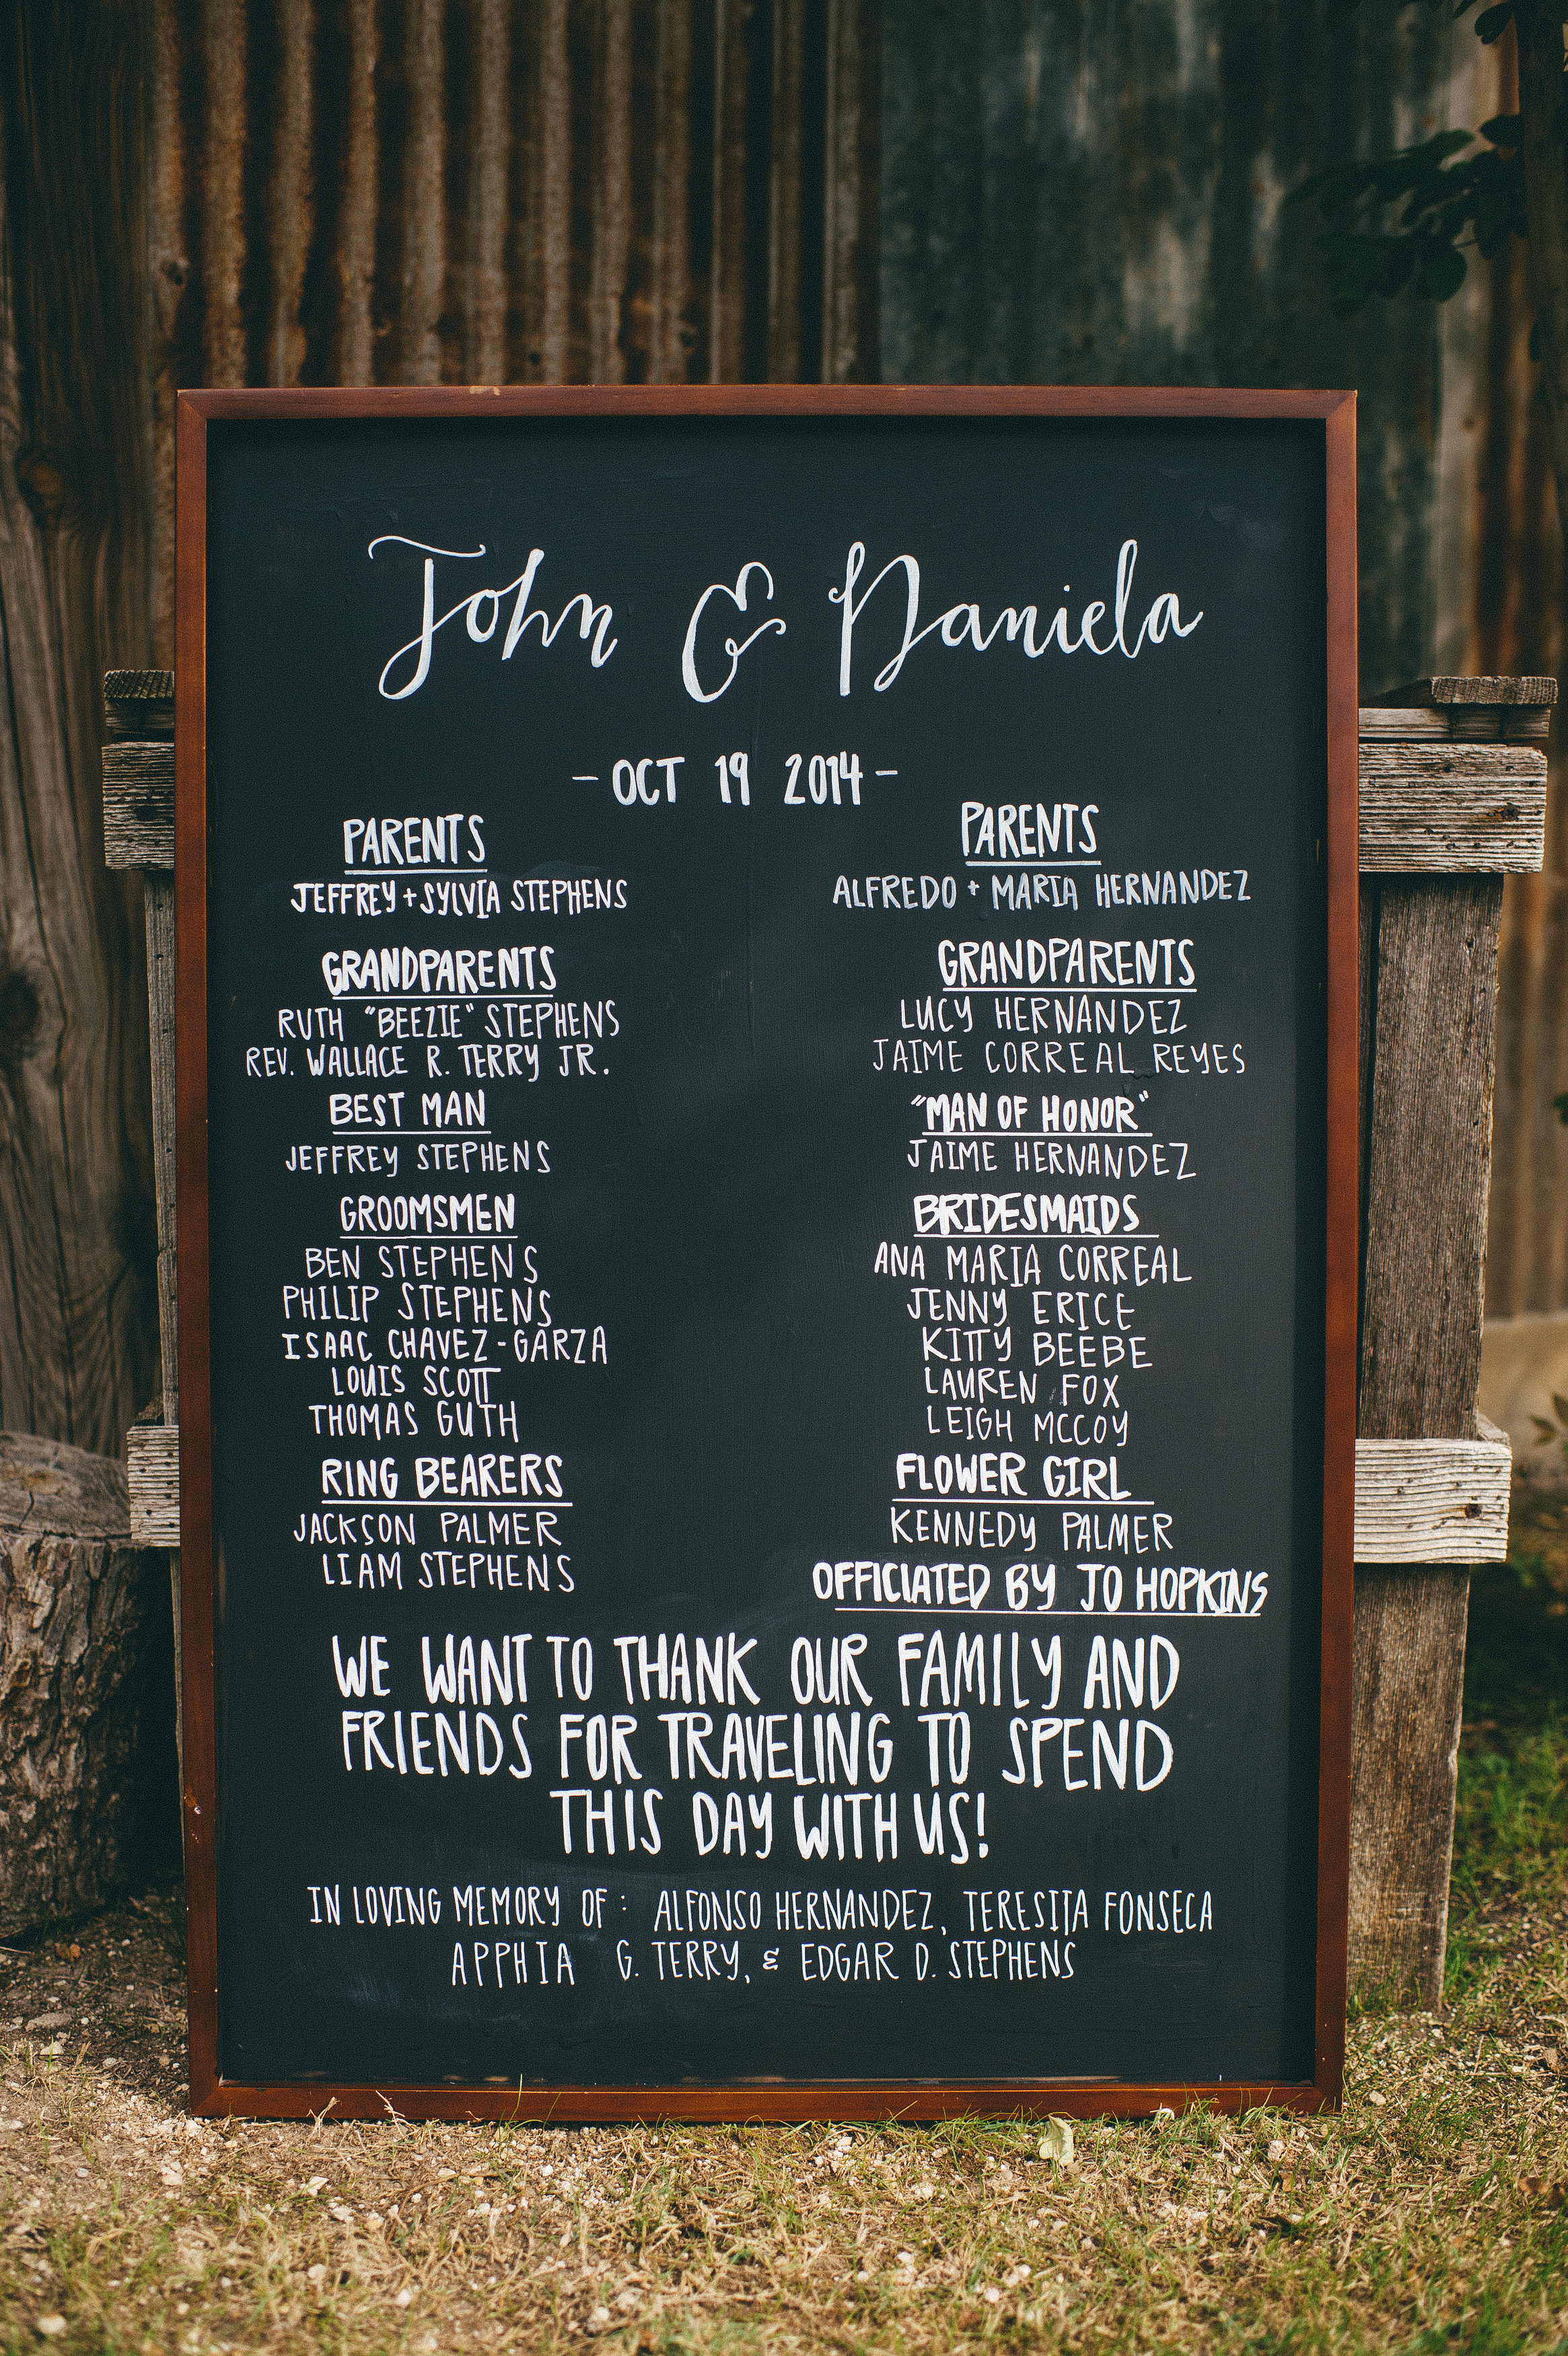 John & Daniela
- OCT 19 2014 -
PARENTS
JEFFREY + SYLVIA STEPHENS
GRANDPARENTS
RUTH "BEEZIE" STEPHENS
REV. WALLACE R. TERRY JR.
BEST MAN
JEFFREY STEPHENS
GROOMSMEN
BEN STEPHENS
PHILIP STEPHENS
ISAAC CHAVEZ-GARZA
LOUIS SCOTT
THOMAS GUTH
RING BEARERS
JACKSON PALMER
LIAM STEPHENS
PARENTS
ALFREDO + MARIA HERNANDEZ
GRANDPARENTS
LUCY HERNANDEZ
JAIME CORREAL REYES
"MAN OF HONOR"
JAIME HERNANDEZ
BRIDESMAIDS
ANA MARIA CORREAL
JENNY ERICE
KITTY BEEBE
LAUREN FOX
LEIGH MCCOY
FLOWER GIRL
KENNEDY PALMER
OFFICIATED BY JO HOPKINS
WE WANT TO THANK OUR FAMILY AND
FRIENDS FOR TRAVELING TO SPEND
THIS DAY WITH US!
IN LOVING MEMORY OF: ALFONSO HERNANDEZ, TERESITA FONSECA
APPHIA G. TERRY, & EDGAR D. STEPHENS